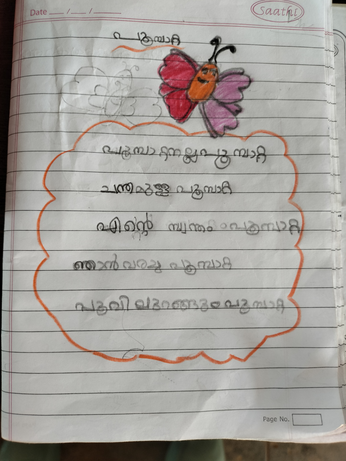 Date __/__/__
Saathi
പൂമ്പാറ്റ
പൂമ്പാറ്റനല്ല പൂമ്പാറ്റ
ചന്തമുള്ള പൂമ്പാറ്റ
എന്റെ സ്വന്തം പൂമ്പാറ്റ
ഞാൻ വരച്ച പൂമ്പാറ്റ
Page No.